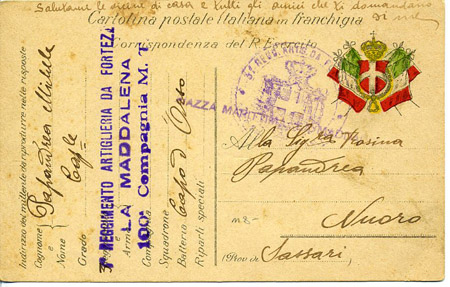 Salutame le
di casa e tutti gli amici che ti domandano
di me
Cartolina postale Italiana in franchigia
Corrispondenza del R. Esercito
3° REGG. ARTIG. DA
PIAZZA MARITTIMA
Alla Sig. Rosina
Papandrea
Nuoro
(Prov. di Sassari)
Indirizzo del mittente da riprodurre nelle risposte
Cognome Papandrea Michele
e
Nome
Grado
REGGIMENTO ARTIGLIERIA DA FORTEZZA
LA MADDALENA
100ª Compagnia M. T.
Squadrone
Batteria Capo d' Orso
Riparti speciali